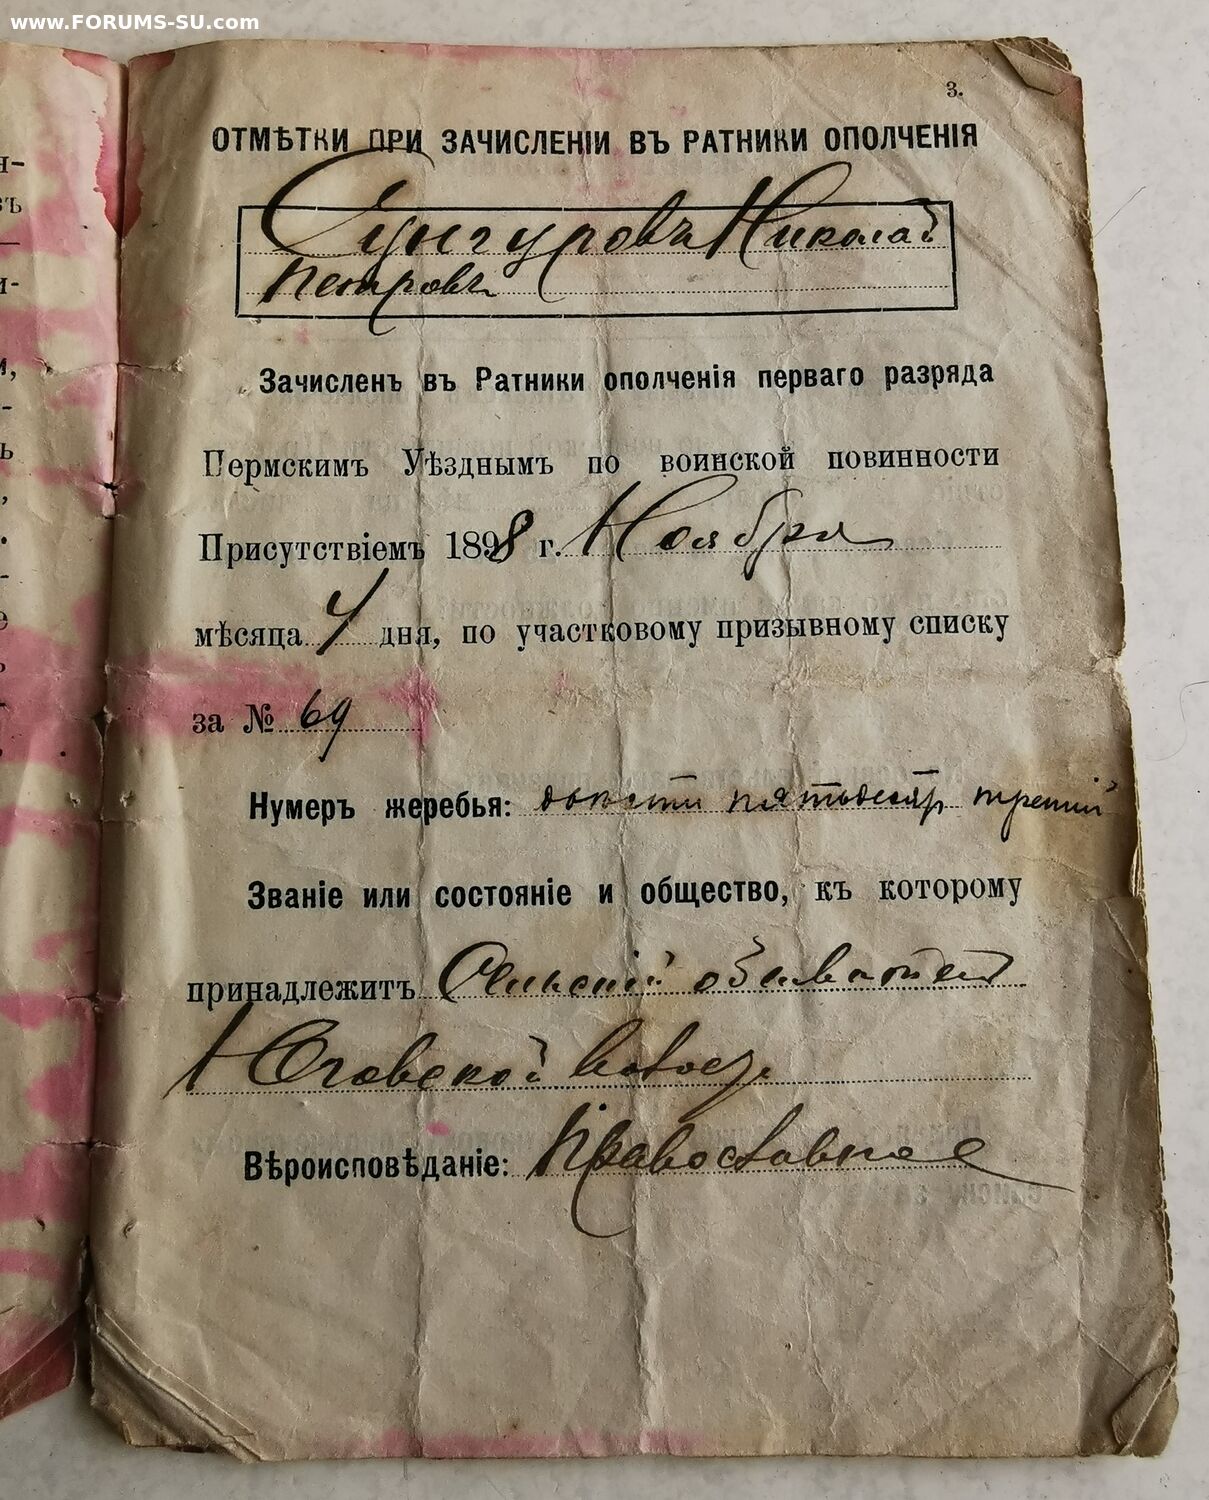 www.FORUMS-SU.com
3.
ОТМѢТКИ ПРИ ЗАЧИСЛЕНІИ ВЪ РАТНИКИ ОПОЛЧЕНІЯ
Сунгуровъ Николай
Петровъ
Зачисленъ въ Ратники ополченія перваго разряда
Пермскимъ Уѣзднымъ по воинской повинности
Присутствіемъ 1898 г. Ноября
мѣсяца 4 дня, по участковому призывному списку
за № 69
Нумеръ жеребья: двѣсти пятьдесят третій
Званіе или состояніе и общество, къ которому
принадлежитъ Сельскій обыватель
Юговской
Вѣроисповѣданіе: Православное